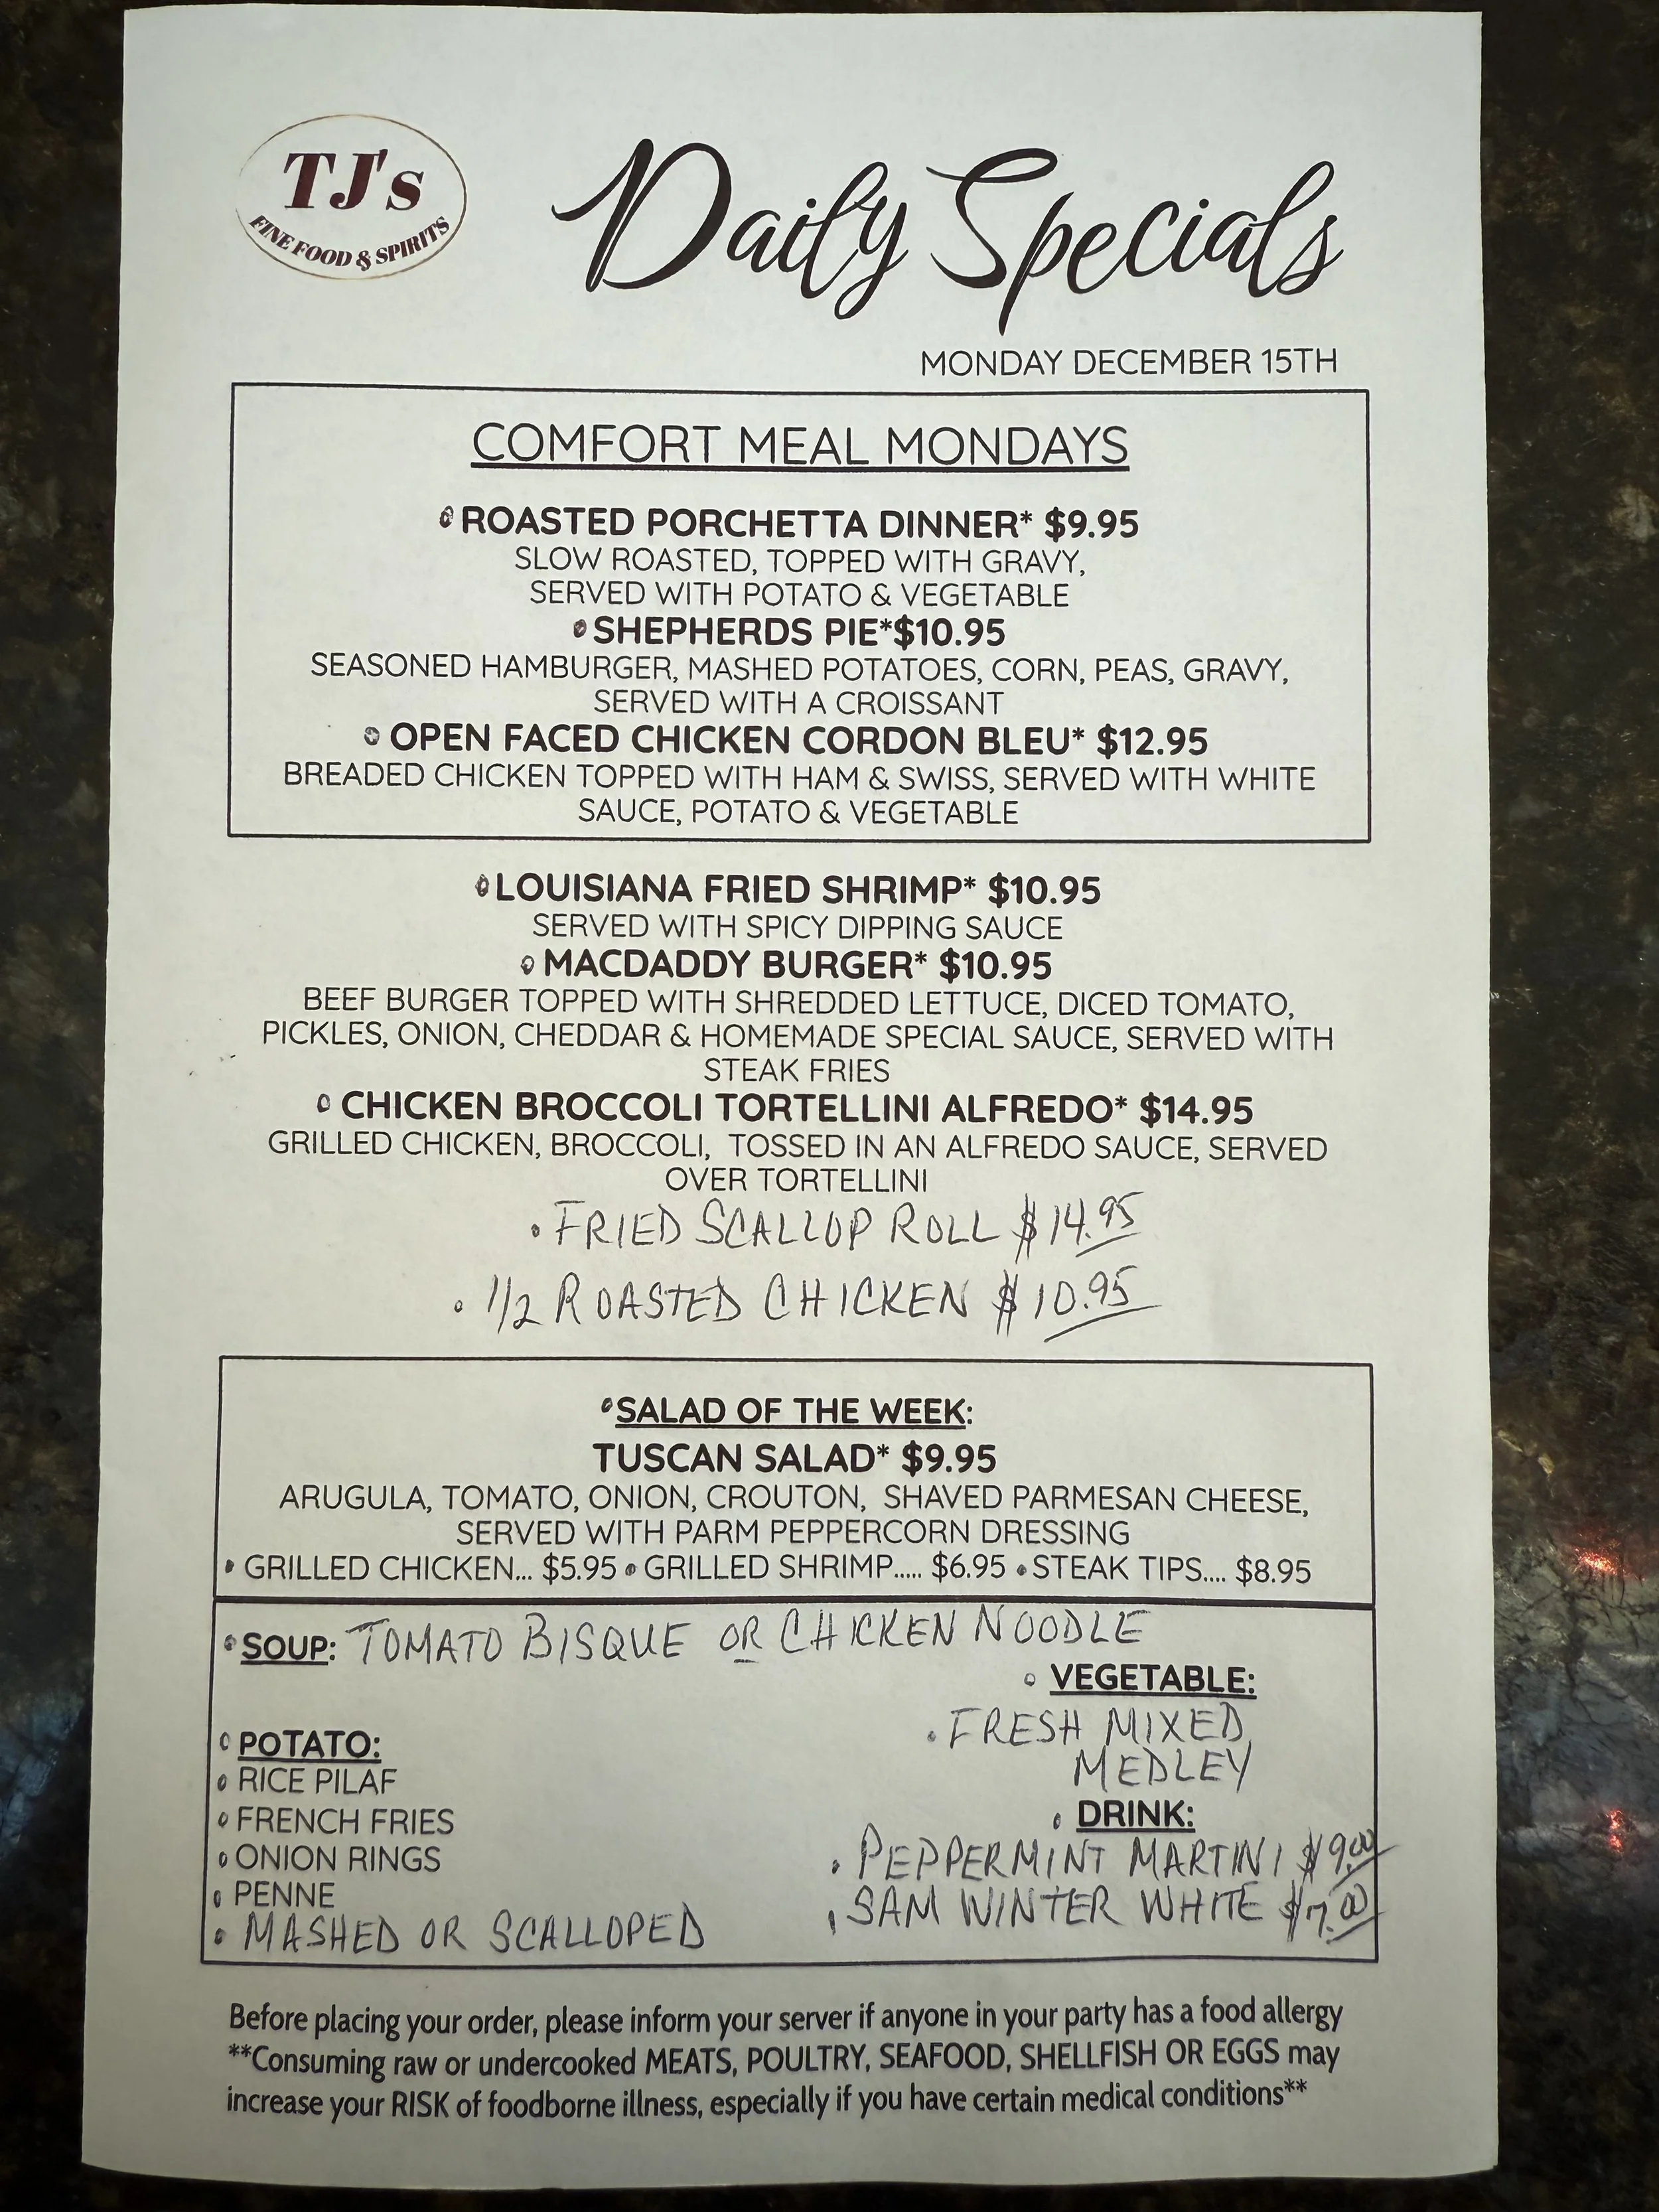 TJ's
FINE FOOD & SPIRITS
Daily Specials
MONDAY DECEMBER 15TH
COMFORT MEAL MONDAYS
ROASTED PORCHETTA DINNER* $9.95
SLOW ROASTED, TOPPED WITH GRAVY,
SERVED WITH POTATO & VEGETABLE
SHEPHERDS PIE*$10.95
SEASONED HAMBURGER, MASHED POTATOES, CORN, PEAS, GRAVY,
SERVED WITH A CROISSANT
OPEN FACED CHICKEN CORDON BLEU* $12.95
BREADED CHICKEN TOPPED WITH HAM & SWISS, SERVED WITH WHITE
SAUCE, POTATO & VEGETABLE
LOUISIANA FRIED SHRIMP* $10.95
SERVED WITH SPICY DIPPING SAUCE
MACDADDY BURGER* $10.95
BEEF BURGER TOPPED WITH SHREDDED LETTUCE, DICED TOMATO,
PICKLES, ONION, CHEDDAR & HOMEMADE SPECIAL SAUCE, SERVED WITH
STEAK FRIES
CHICKEN BROCCOLI TORTELLINI ALFREDO* $14.95
GRILLED CHICKEN, BROCCOLI, TOSSED IN AN ALFREDO SAUCE, SERVED
OVER TORTELLINI
• FRIED SCALLOP ROLL $14.95
• 1/2 ROASTED CHICKEN $10.95
SALAD OF THE WEEK:
TUSCAN SALAD* $9.95
ARUGULA, TOMATO, ONION, CROUTON, SHAVED PARMESAN CHEESE,
SERVED WITH PARM PEPPERCORN DRESSING
• GRILLED CHICKEN... $5.95 • GRILLED SHRIMP..... $6.95 • STEAK TIPS.... $8.95
• SOUP: TOMATO BISQUE OR CHICKEN NOODLE
• VEGETABLE:
• FRESH MIXED
MEDLEY
• POTATO:
• RICE PILAF
• FRENCH FRIES
• ONION RINGS
• PENNE
• MASHED OR SCALLOPED
• DRINK:
• PEPPERMINT MARTINI $9.00
• SAM WINTER WHITE $7.00
Before placing your order, please inform your server if anyone in your party has a food allergy
**Consuming raw or undercooked MEATS, POULTRY, SEAFOOD, SHELLFISH OR EGGS may
increase your RISK of foodborne illness, especially if you have certain medical conditions**